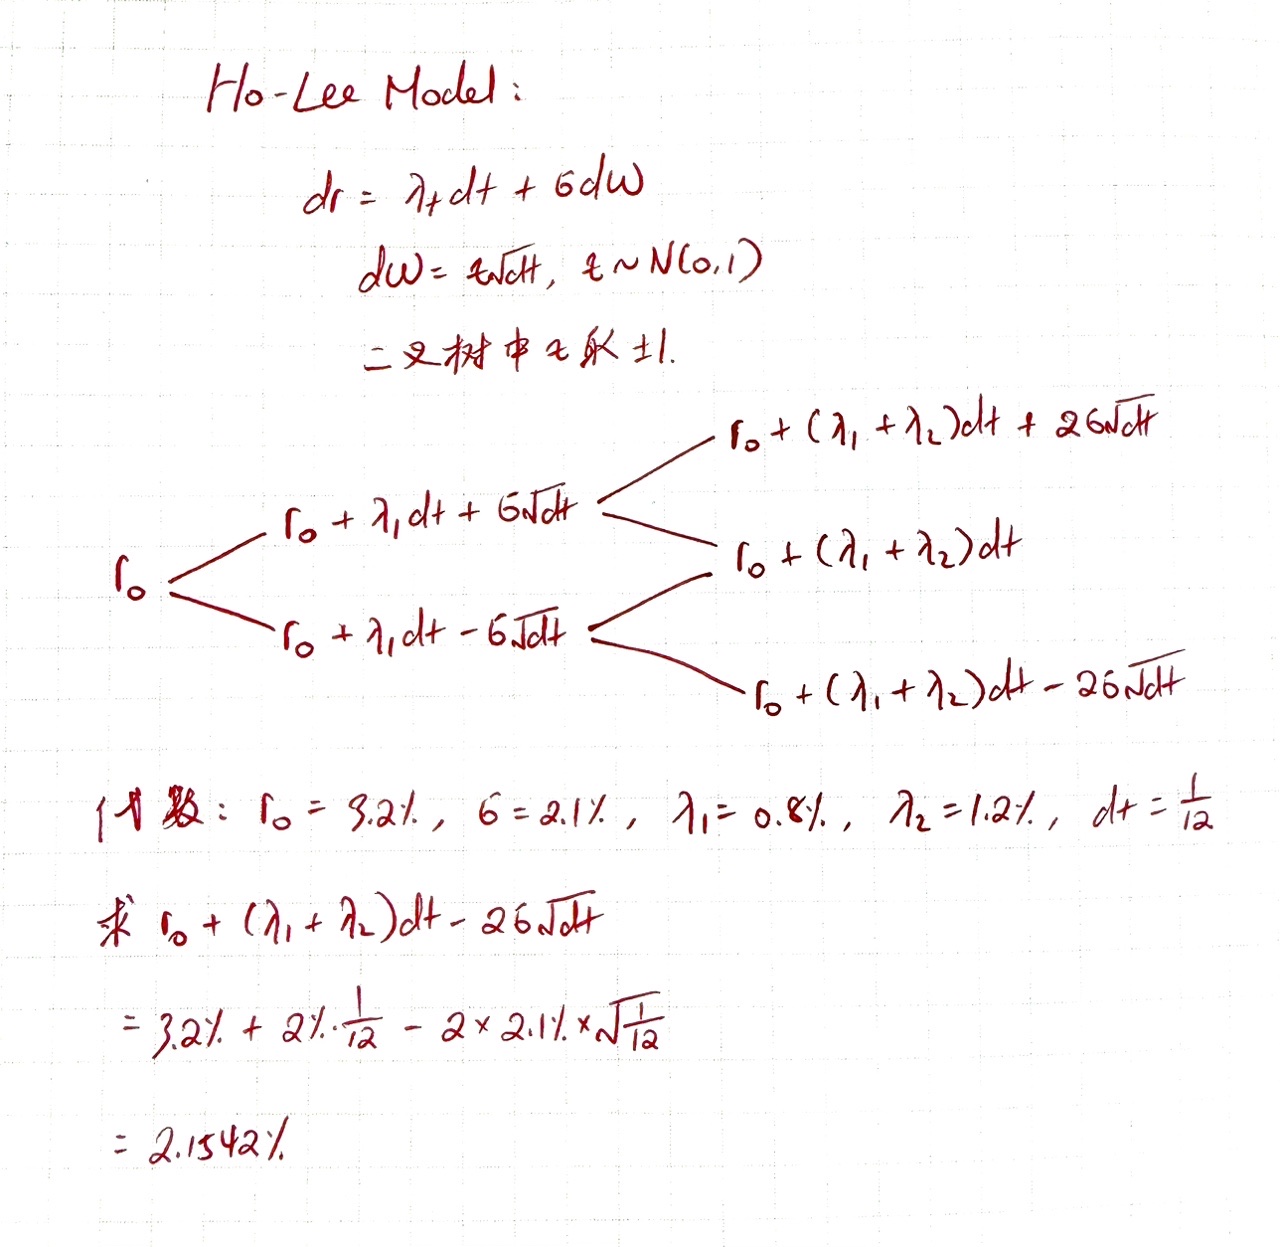 Ho-Lee Model:
dr = λt dt + σdw
dw = z√dt, z ~ N(0,1)
二叉树中z取±1.
r₀ + (λ₁ + λ₂)dt + 2σ√dt
r₀ + λ₁dt + σ√dt
r₀ + (λ₁ + λ₂)dt
r₀
r₀ + λ₁dt - σ√dt
r₀ + (λ₁ + λ₂)dt - 2σ√dt
代数: r₀ = 3.2%, σ = 2.1%, λ₁ = 0.8%, λ₂ = 1.2%, dt = 1/12
求 r₀ + (λ₁ + λ₂)dt - 2σ√dt
= 3.2% + 2%·1/12 - 2 × 2.1% × √(1/12)
= 2.1542%